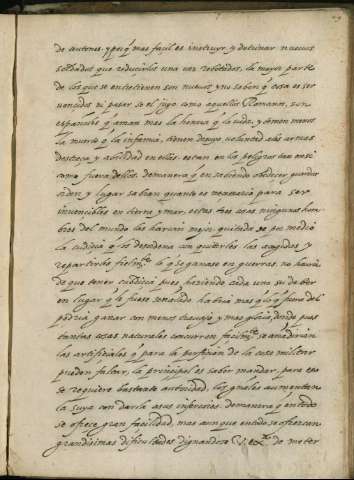 de autones. y porq̃ mas facil es instruyr, y detrinar nueuos
soldados que reduçirlos una vez rebotados, la mayor parte
de los que se entretienen son nueuos y no saben q̃ cosa es ser
vencidos ni pasar so el jugo como aquellos Romanos, son
españoles q̃ aman mas la honrra q̃ la vida, y temen menos
la muerte q̃ la infamia, tienen de suyo voluntad a las armas
destreza y abilidad en ellas. estan en los peligros tan en si
como fuera dellos. de manera q̃ en sabiendo obedecer guardar
orden y lugar sabran quanto es necesario para ser
inuencibles en tierra y mar, estas tres cosas ningunos hom
bres del mundo las haran mejor quitado de por medio
la cudicia q̃ los desordena con quitarles las
repartirlas fielm.te lo q̃ se ganase en guerras, no hauria
de que tener cubdicia pues haziendo cada uno su deber
en lugar q̃ le fuese señalado hauria mas q̃ lo q̃ fuera del
podria ganar con menos trauajo, y mas gloria, donde pues
tantas cosas naturales concurren facilm.te se añadirian
las artificiales q̃ para la perfiçion de la cosa militar
pueden faltar, la principal es saber mandar, para eso
se requiere bastante autoridad, los quales aumentan
la suya con darla a sus inferiores. de manera q̃ en todo
se ofreçe gran facilidad, mas aunque en todo se ofrezcan
grandisimas dificultades dignandose V. ex.ª de meter